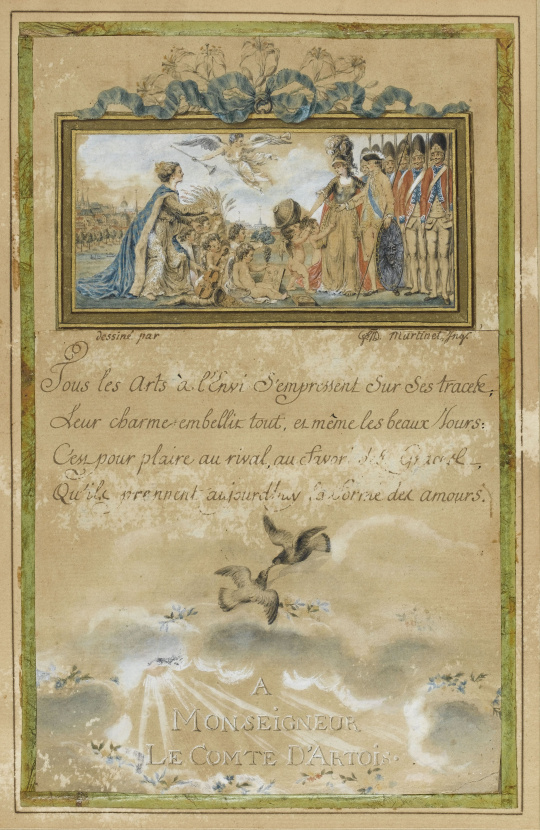 dessiné par
Martinet, Ing.
Tous les Arts à l'Envi S'empressent Sur Ses traces,
Leur charme embellit tout, et même les beaux Jours:
C'est pour plaire au rival, au favori des Graces,
Qu'ils prennent aujourd'huy la forme des amours.
A
MONSEIGNEUR
LE COMTE D'ARTOIS.